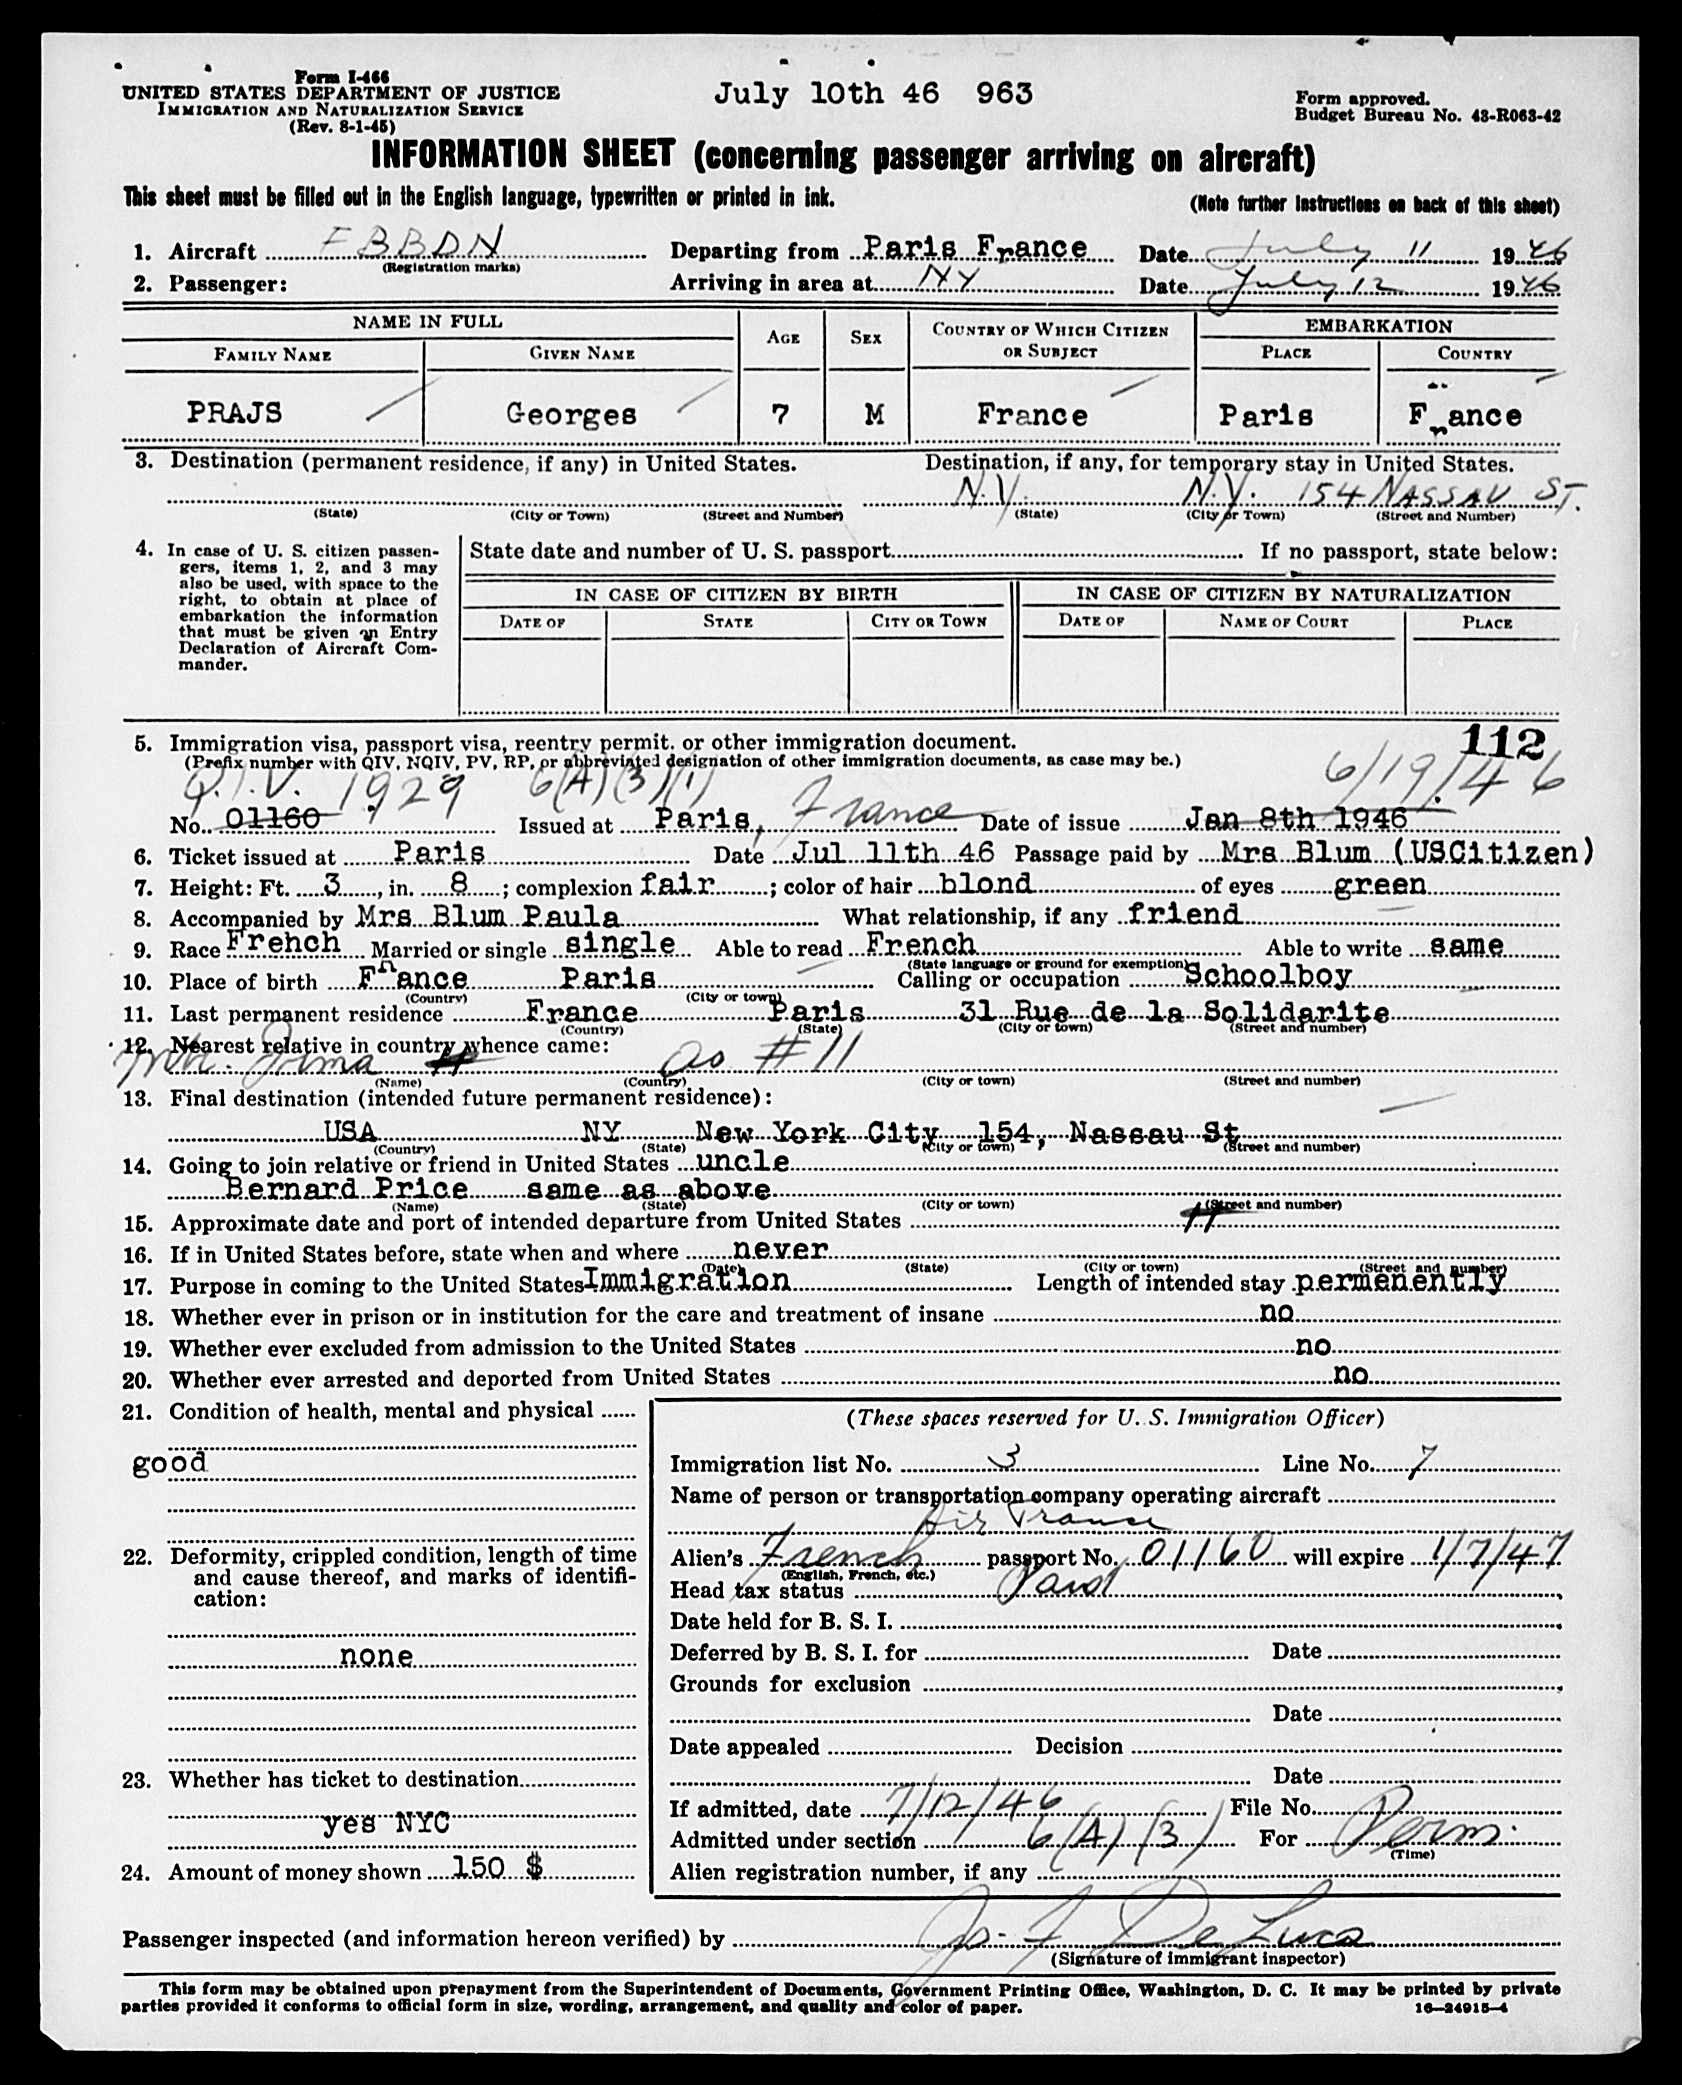 Form I-466
UNITED STATES DEPARTMENT OF JUSTICE
IMMIGRATION AND NATURALIZATION SERVICE
(Rev. 8-1-45)
July 10th 46 963
Form approved.
Budget Bureau No. 43-R063-42
INFORMATION SHEET (concerning passenger arriving on aircraft)
This sheet must be filled out in the English language, typewritten or printed in ink.
(Note further instructions on back of this sheet)
1. Aircraft FBBDN Departing from Paris France Date July 11 1946
(Registration marks)
2. Passenger: Arriving in area at NY Date July 12 1946
NAME IN FULL AGE SEX COUNTRY OF WHICH CITIZEN OR SUBJECT EMBARKATION
FAMILY NAME GIVEN NAME PLACE COUNTRY
PRAJS Georges 7 M France Paris France
3. Destination (permanent residence, if any) in United States. Destination, if any, for temporary stay in United States.
N.Y. N.Y. 154 NASSAU ST.
(State) (City or Town) (Street and Number) (State) (City or Town) (Street and Number)
4. In case of U. S. citizen passen-
gers, items 1, 2, and 3 may
also be used, with space to the
right, to obtain at place of
embarkation the information
that must be given on Entry
Declaration of Aircraft Com-
mander.
State date and number of U. S. passport If no passport, state below:
IN CASE OF CITIZEN BY BIRTH IN CASE OF CITIZEN BY NATURALIZATION
DATE OF STATE CITY OR TOWN DATE OF NAME OF COURT PLACE
112
5. Immigration visa, passport visa, reentry permit, or other immigration document.
(Prefix number with QIV, NQIV, PV, RP, or abbreviated designation of other immigration documents, as case may be.)
Q.I.V. 1929 6(A)(3)(1) 6/19/46
No. 01160 Issued at Paris, France Date of issue Jan 8th 1946
6. Ticket issued at Paris Date Jul 11th 46 Passage paid by Mrs Blum (USCitizen)
7. Height: Ft. 3, in. 8; complexion fair; color of hair blond of eyes green
8. Accompanied by Mrs Blum Paula What relationship, if any friend
9. Race Frehch Married or single single Able to read French Able to write same
(State language or ground for exemption)
10. Place of birth France Paris Calling or occupation Schoolboy
(Country) (City or town)
11. Last permanent residence France Paris 31 Rue de la Solidarite
(Country) (State) (City or town) (Street and number)
12. Nearest relative in country whence came:
as #11
(Name) (Country) (City or town) (Street and number)
13. Final destination (intended future permanent residence):
USA NY New York City 154, Nassau St
(Country) (State) (City or town) (Street and number)
14. Going to join relative or friend in United States uncle
Bernard Price same as above
(Name) (State) (City or town) (Street and number)
15. Approximate date and port of intended departure from United States
16. If in United States before, state when and where never
(Date) (State) (City or town) (Street and number)
17. Purpose in coming to the United States Immigration Length of intended stay permenently
18. Whether ever in prison or in institution for the care and treatment of insane no
19. Whether ever excluded from admission to the United States no
20. Whether ever arrested and deported from United States no
21. Condition of health, mental and physical
good
22. Deformity, crippled condition, length of time
and cause thereof, and marks of identifi-
cation:
none
23. Whether has ticket to destination
yes NYC
24. Amount of money shown 150 $
(These spaces reserved for U. S. Immigration Officer)
Immigration list No. 3 Line No. 7
Name of person or transportation company operating aircraft
Air France
Alien's French passport No. 01160 will expire 1/7/47
(English, French, etc.)
Head tax status Paid
Date held for B. S. I.
Deferred by B. S. I. for Date
Grounds for exclusion
Date
Date appealed Decision
Date
If admitted, date 7/12/46 File No.
Admitted under section 6(A)(3) For Perm.
(Time)
Alien registration number, if any
Passenger inspected (and information hereon verified) by De Luca
(Signature of immigrant inspector)
This form may be obtained upon prepayment from the Superintendent of Documents, Government Printing Office, Washington, D. C. It may be printed by private
parties provided it conforms to official form in size, wording, arrangement, and quality and color of paper.
16—24915-4